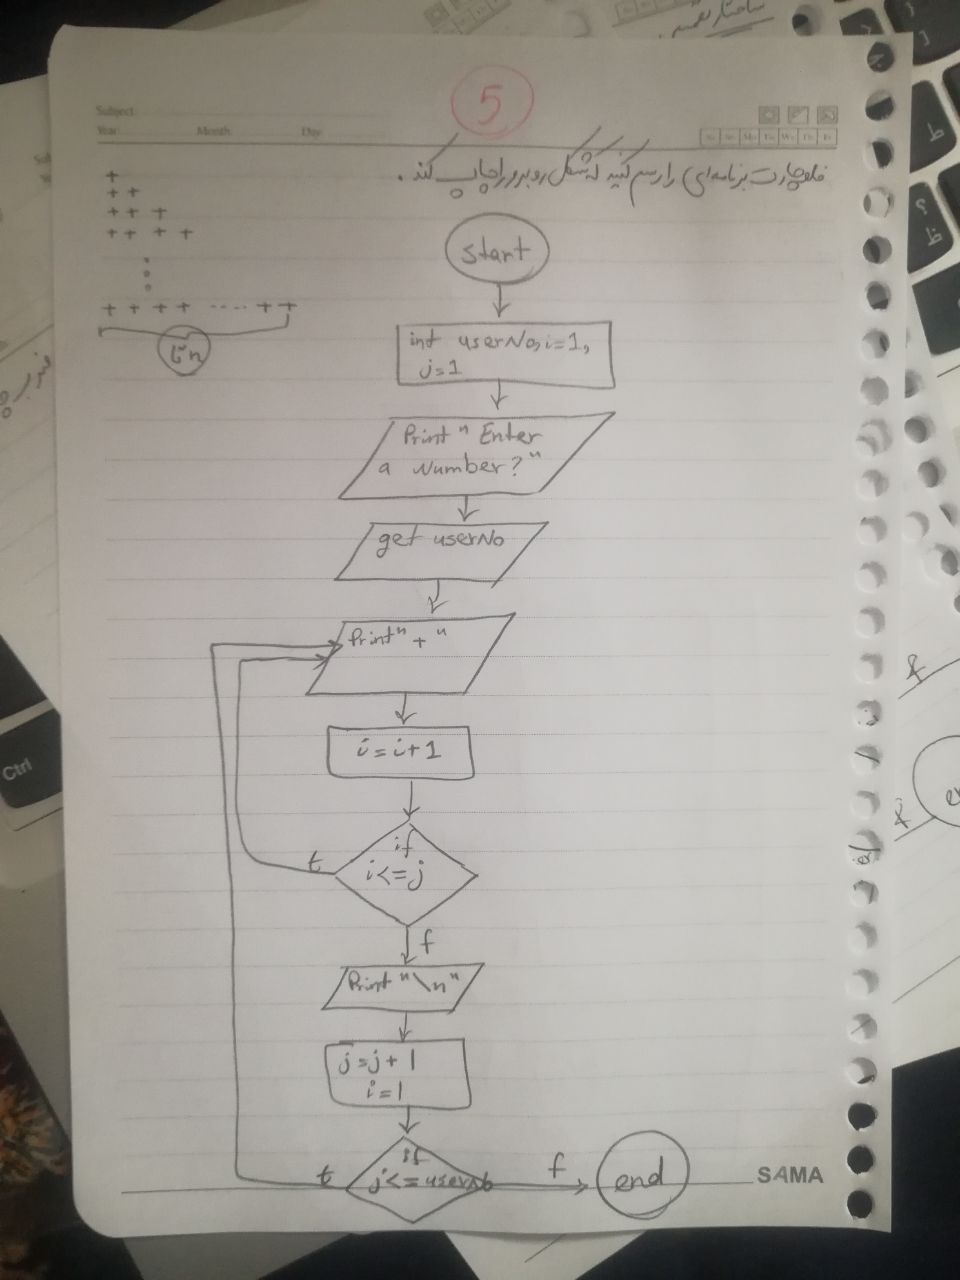 5
Subject:
Year: Month: Day:
فلوچارت برنامه‌ای را رسم کنید که شکل روبرو را چاپ کند.
+
+ +
+ + +
+ + + +
+ + + + .... + +
تا n
start
int userNo, i=1,
j=1
Print " Enter
a Number? "
get userNo
Print " + "
i = i+1
if
i<=j
t
f
Print "\n"
j=j+1
i=1
if
j<=userNo
t
f
end
SAMA
Ctrl